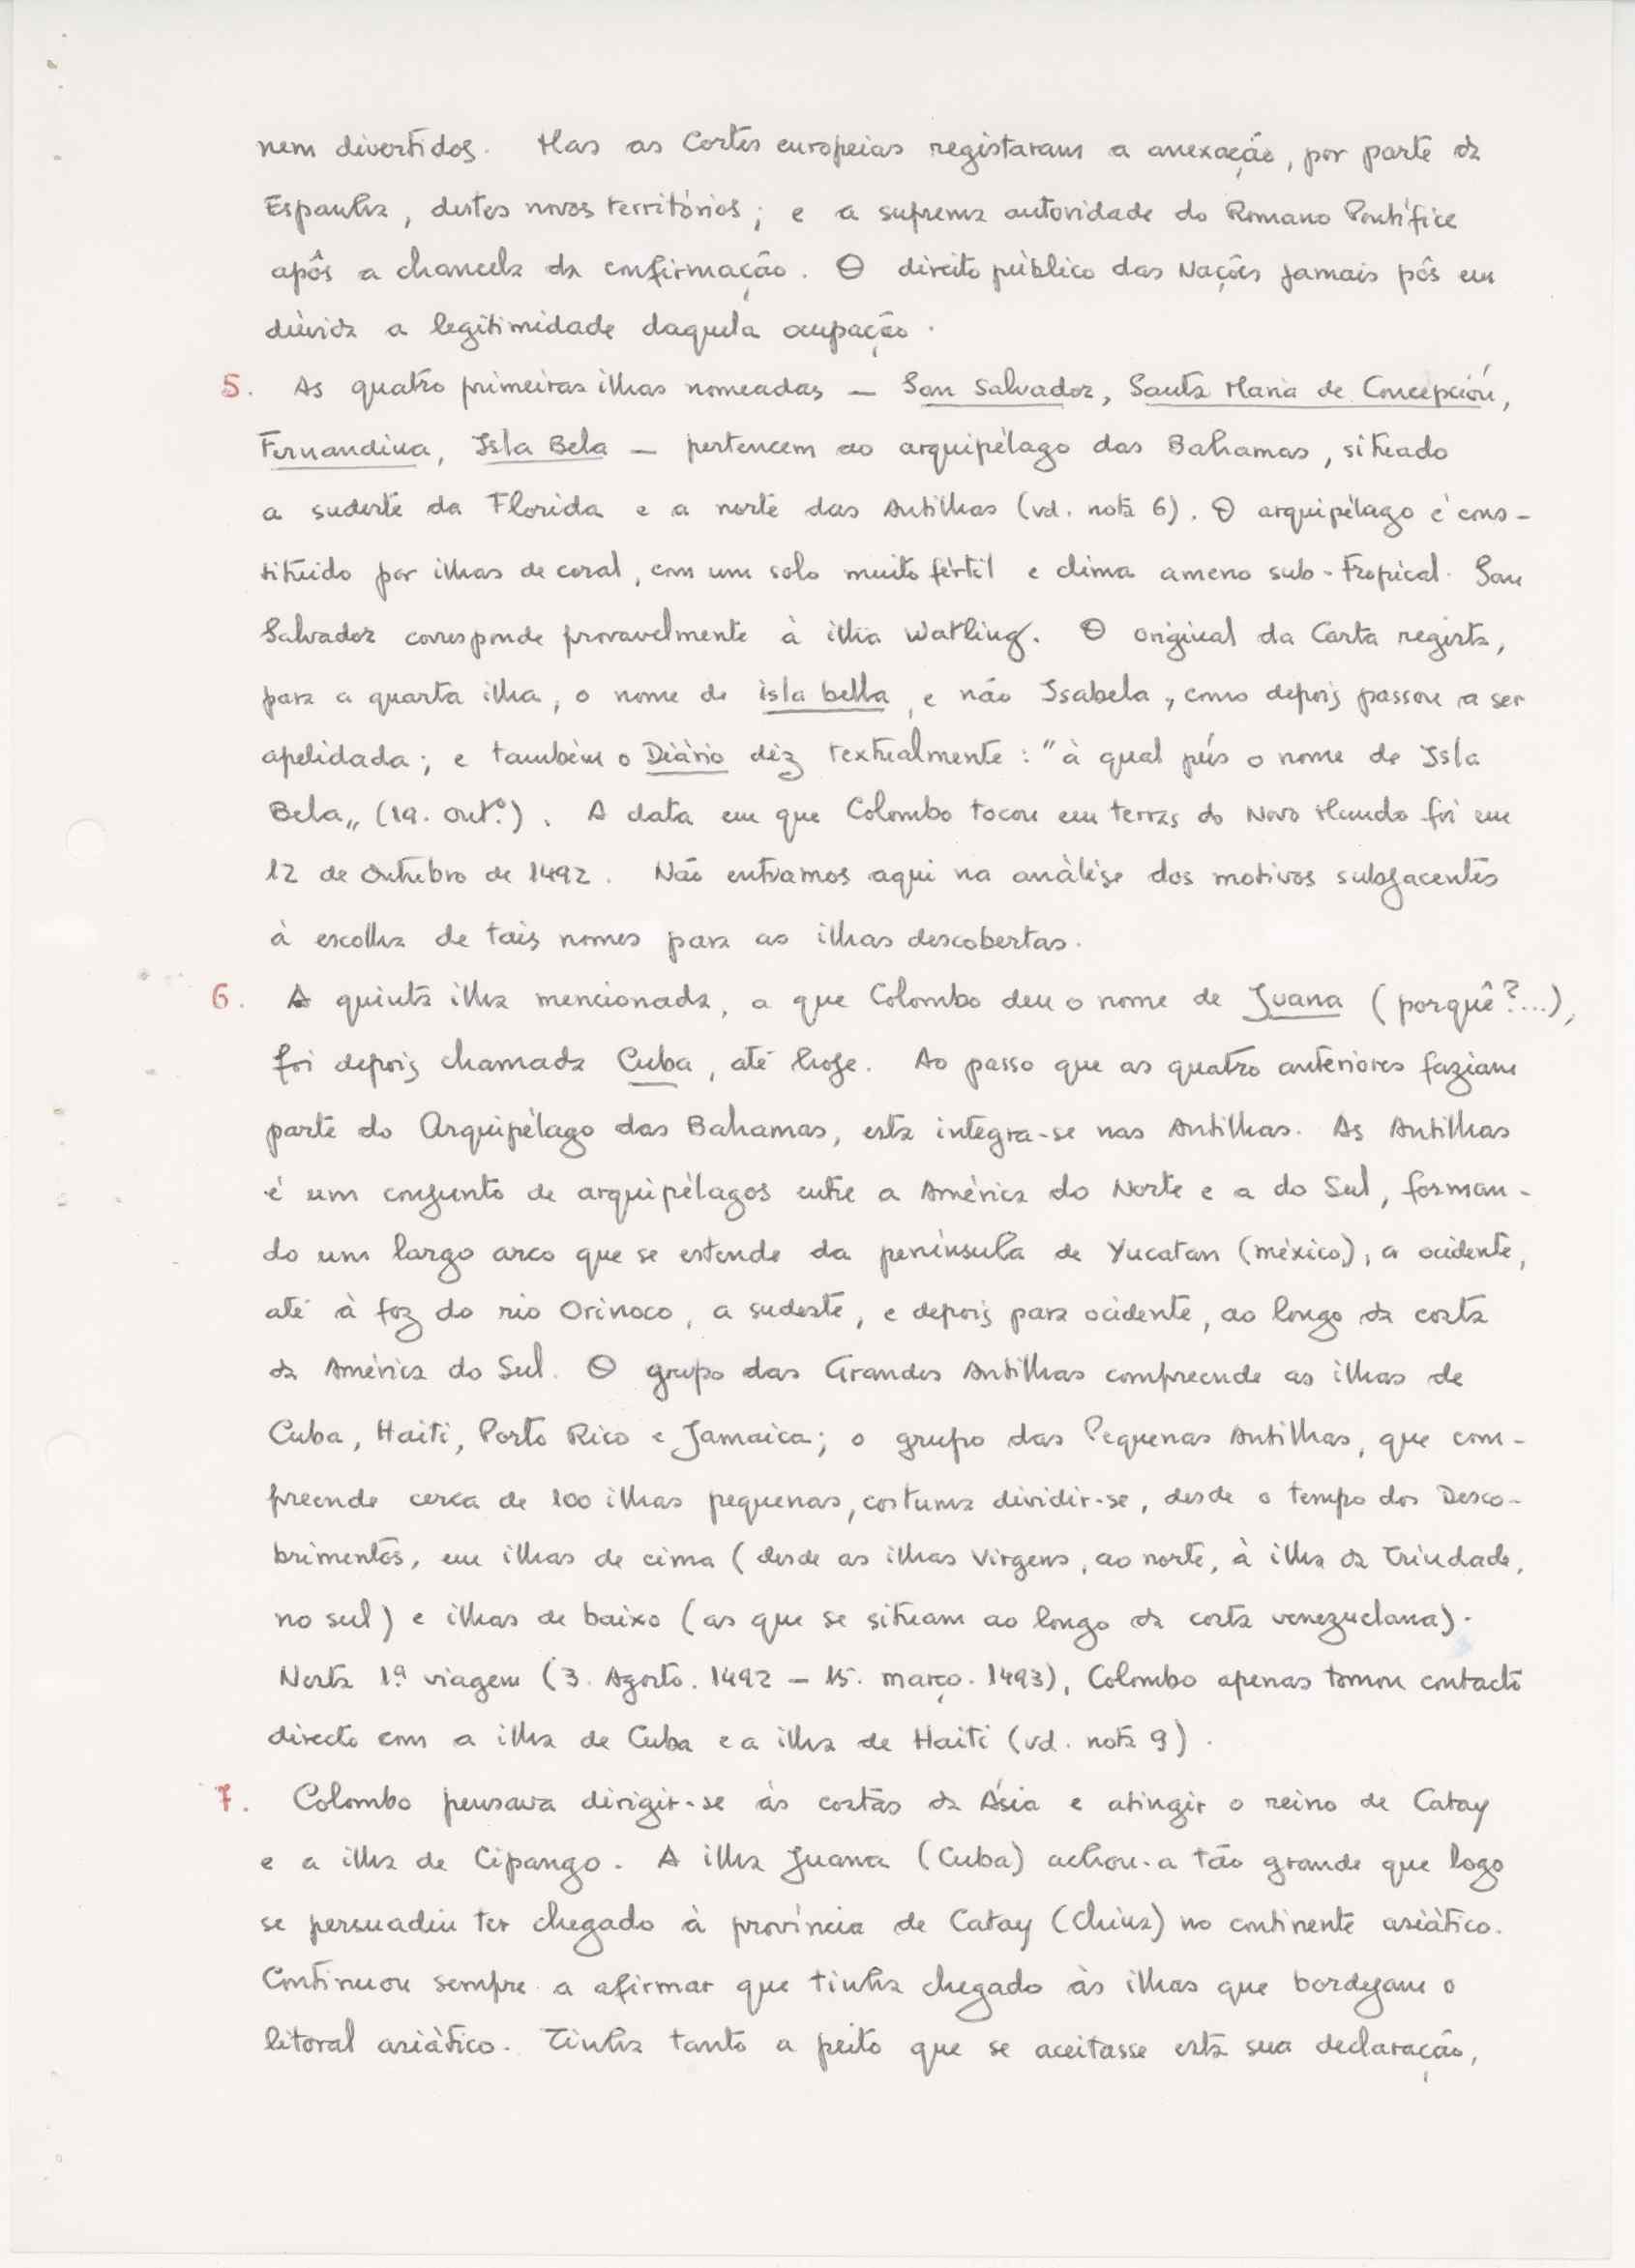 nem divertidos. Mas as Cortes europeias registaram a anexação, por parte da
Espanha, destes novos territórios; e a suprema autoridade do Romano Pontífice
apôs a chancela da confirmação. O direito público das Nações jamais pôs em
dúvida a legitimidade daquela ocupação.
5. As quatro primeiras ilhas nomeadas — San Salvador, Santa Maria de Concepción,
Fernandina, Isla Bela — pertencem ao arquipélago das Bahamas, situado
a sudeste da Florida e a norte das Antilhas (vd. nota 6). O arquipélago é cons-
tituido por ilhas de coral, com um solo muito fértil e clima ameno sub-tropical. San
Salvador corresponde provavelmente à ilha Watling. O original da Carta regista,
para a quarta ilha, o nome de isla bella, e não Isabela, como depois passou a ser
apelidada; e também o Diário diz textualmente: "à qual pús o nome de Isla
Bela„ (19. outº.). A data em que Colombo tocou em terras do Novo Mundo foi em
12 de Outubro de 1492. Não entramos aqui na análise dos motivos subjacentes
à escolha de tais nomes para as ilhas descobertas.
6. A quinta ilha mencionada, a que Colombo deu o nome de Juana (porquê?...),
foi depois chamada Cuba, até hoje. Ao passo que as quatro anteriores faziam
parte do Arquipélago das Bahamas, esta integra-se nas Antilhas. As Antilhas
é um conjunto de arquipélagos entre a América do Norte e a do Sul, forman-
do um largo arco que se estende da península de Yucatan (méxico), a ocidente,
até à foz do rio Orinoco, a sudeste, e depois para ocidente, ao longo da costa
da América do Sul. O grupo das Grandes Antilhas compreende as ilhas de
Cuba, Haiti, Porto Rico e Jamaica; o grupo das Pequenas Antilhas, que com-
preende cerca de 100 ilhas pequenas, costuma dividir-se, desde o tempo dos Desco-
brimentos, em ilhas de cima (desde as ilhas Virgens, ao norte, à ilha da Trindade,
no sul) e ilhas de baixo (as que se situam ao longo da costa venezuelana).
Nesta 1ª viagem (3. Agosto. 1492 — 15. março. 1493), Colombo apenas tomou contacto
directo com a ilha de Cuba e a ilha de Haiti (vd. nota 9).
7. Colombo pensava dirigir-se às costas da Ásia e atingir o reino de Catay
e a ilha de Cipango. A ilha Juana (Cuba) achou-a tão grande que logo
se persuadiu ter chegado à província de Catay (China) no continente asiático.
Continuou sempre a afirmar que tinha chegado às ilhas que bordejam o
litoral asiático. Tinha tanto a peito que se aceitasse esta sua declaração,